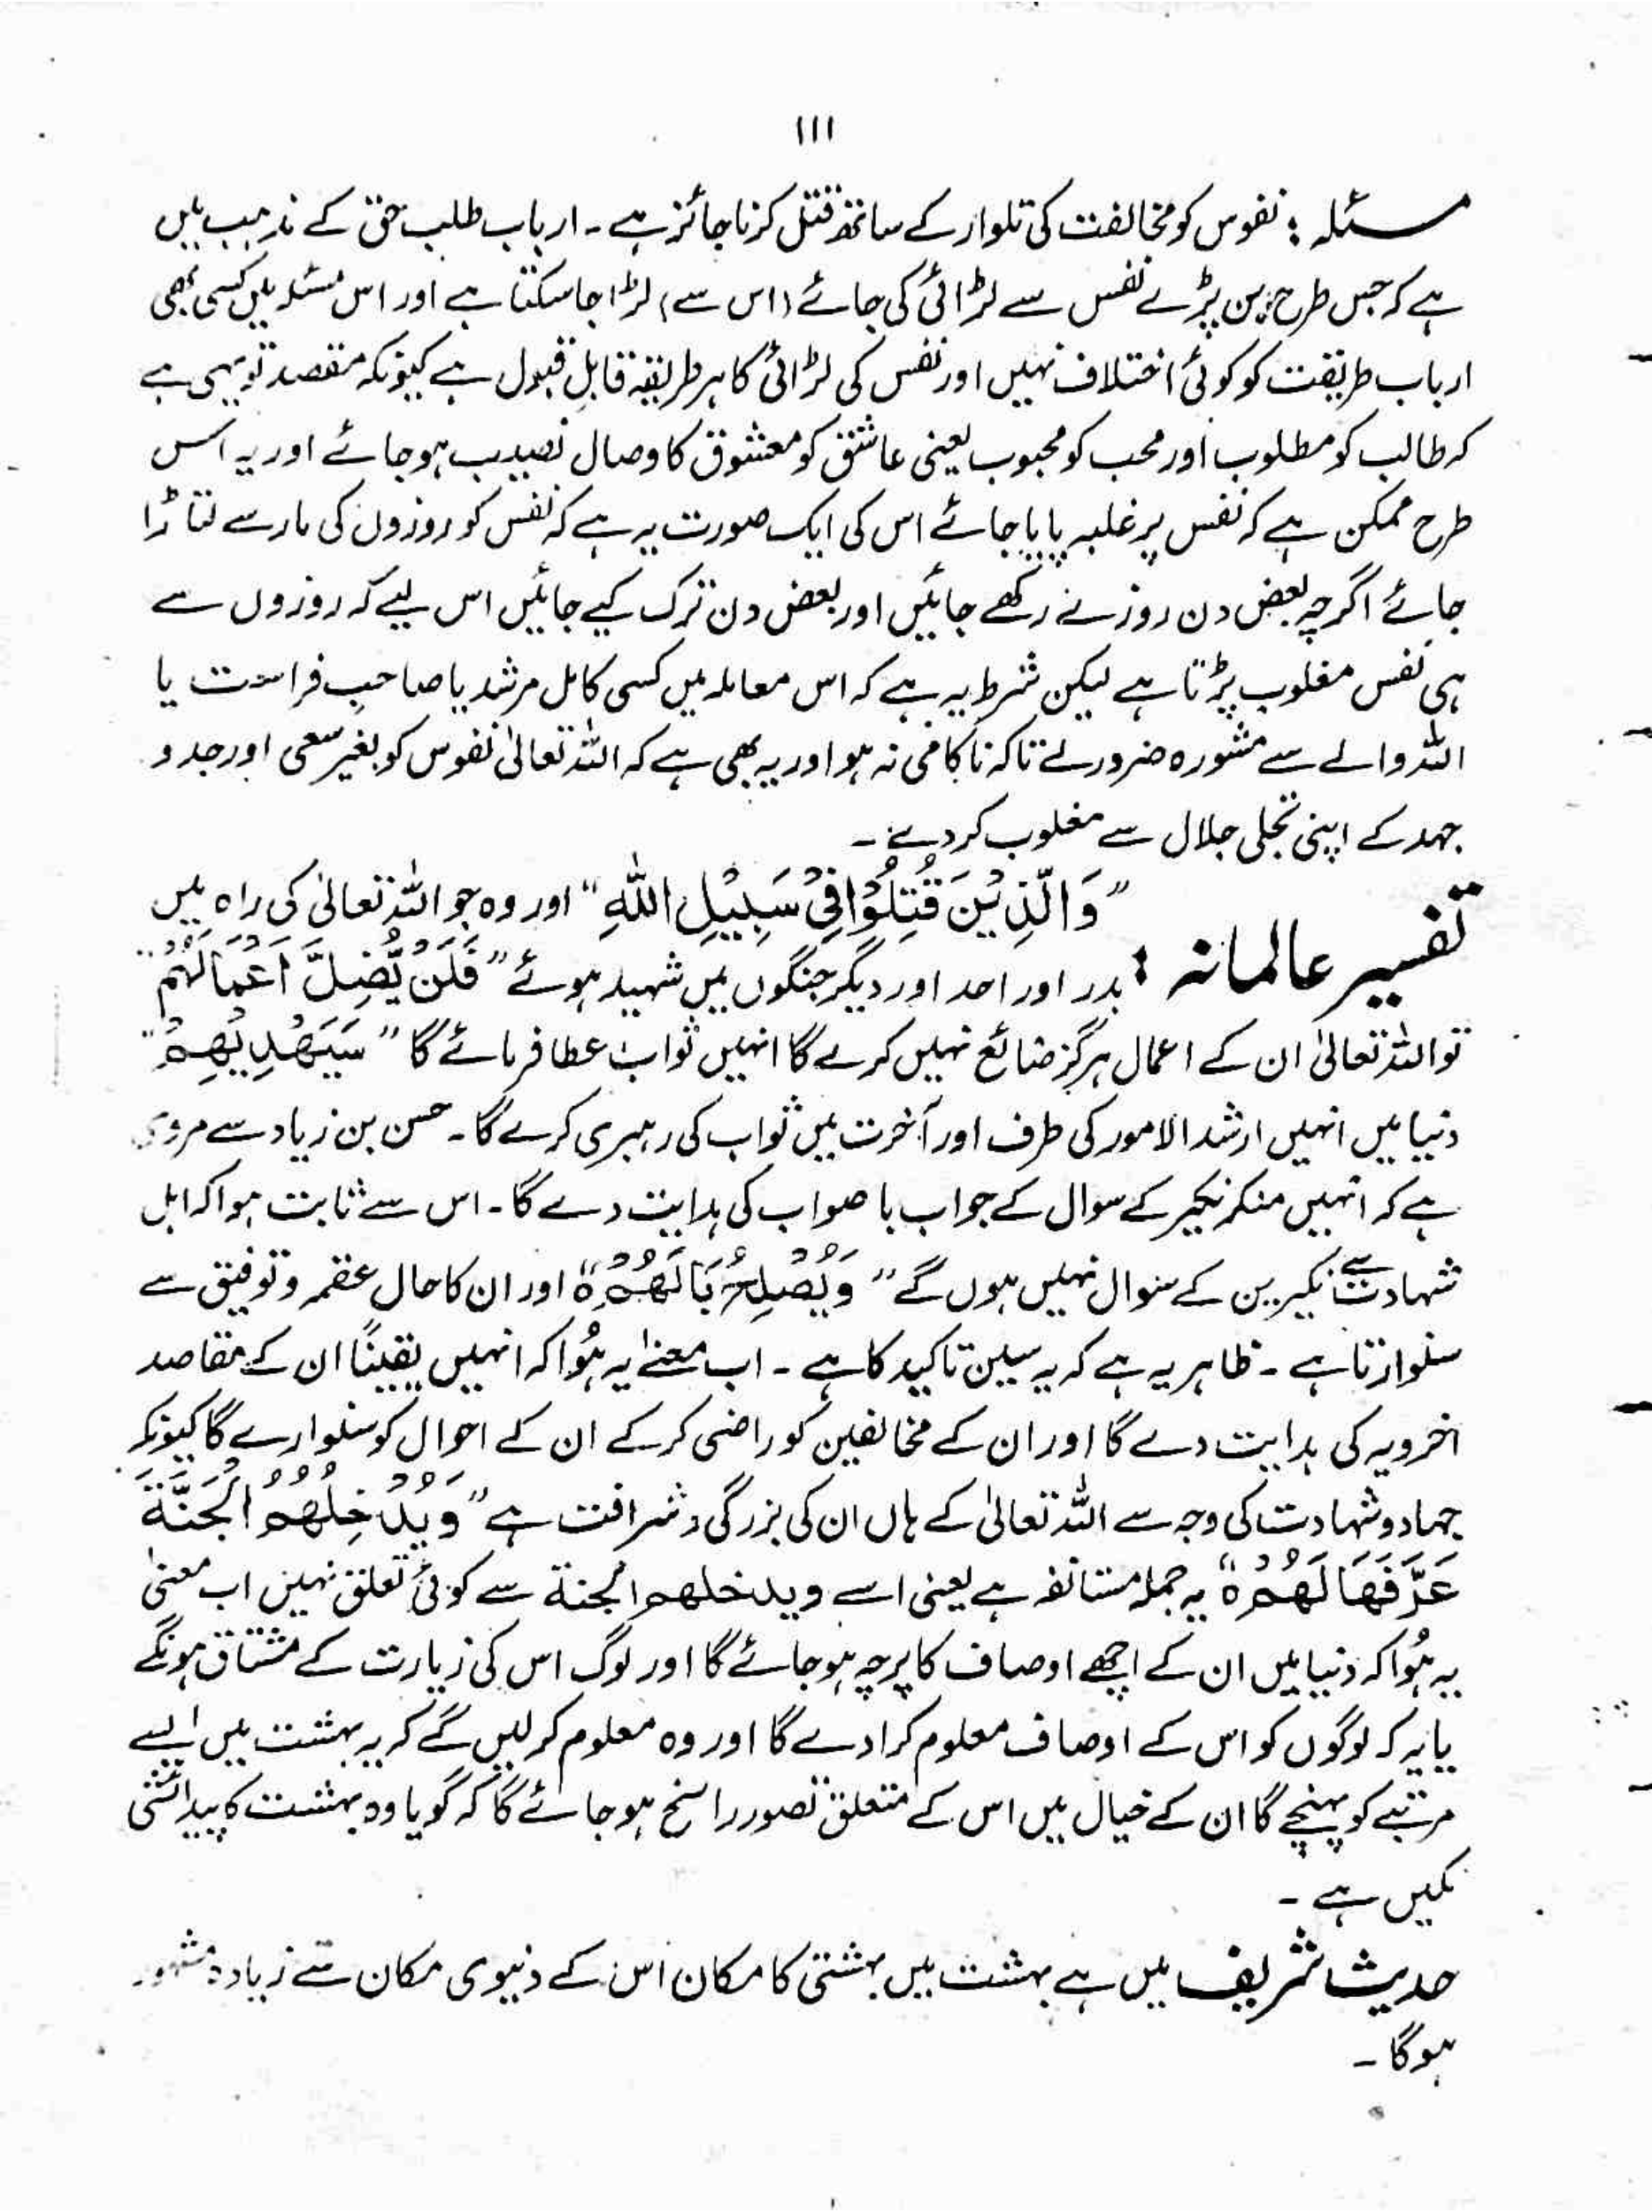 ۱۱۱
مسئلہ : نفوس کو مخالفت کی تلوار کے ساتھ قتل کرنا جائز ہے ۔ ارباب طلب حق کے مذہب میں
ہے کہ جس طرح بن پڑے نفس سے لڑائی کی جائے (اس سے) لڑا جا سکتا ہے اور اس مسئلہ میں کسی بھی
ارباب طریقت کو کوئی اختلاف نہیں اور نفس کی لڑائی کا ہر طریقہ قابل قبول ہے کیونکہ مقصد تو یہی ہے
کہ طالب کو مطلوب اور محب کو محبوب یعنی عاشق کو معشوق کا وصال نصیب ہو جائے اور یہ اس
طرح ممکن ہے کہ نفس پر غلبہ پایا جائے اس کی ایک صورت یہ ہے کہ نفس کو روزوں کی مار سے لتاڑا
جائے اگرچہ بعض دن روزے رکھے جائیں اور بعض دن ترک کیے جائیں اس لیے کہ روزوں سے
ہی نفس مغلوب پڑتا ہے لیکن شرط یہ ہے کہ اس معاملہ میں کسی کامل مرشد یا صاحبِ فراست یا
اللہ والے سے مشورہ ضرور لے تاکہ ناکامی نہ ہو اور یہ بھی ہے کہ اللہ تعالیٰ نفوس کو بغیر سعی اور جد و
جہد کے اپنی تجلی جلال سے مغلوب کر دے ۔
تفسیر عالمانہ : ”وَالَّذِيْنَ قُتِلُوْا فِيْ سَبِيْلِ اللّٰهِ“ اور وہ جو اللہ تعالیٰ کی راہ میں
بدر اور احد اور دیگر جنگوں میں شہید ہوئے ”فَلَنْ يُّضِلَّ اَعْمَالَهُمْ“
تو اللہ تعالیٰ ان کے اعمال ہرگز ضائع نہیں کرے گا انہیں ثواب عطا فرمائے گا ”سَيَهْدِيْهِمْ“
دنیا میں انہیں ارشد الامور کی طرف اور آخرت میں ثواب کی رہبری کرے گا ۔ حسن بن زیاد سے مروی
ہے کہ انہیں منکر نکیر کے سوال کے جواب با صواب کی ہدایت دے گا ۔ اس سے ثابت ہوا کہ اہل
شہادت سے نکیرین کے سوال نہیں ہوں گے ”وَيُصْلِحُ بَالَهُمْ ۃ“ اور ان کا حال عقمہ و توفیق سے
سنوارتا ہے ۔ ظاہر یہ ہے کہ یہ سین تاکید کا ہے ۔ اب معنےٰ یہ ہُوا کہ انہیں یقیناً ان کے مقاصد
اخرویہ کی ہدایت دے گا اور ان کے مخالفین کو راضی کر کے ان کے احوال کو سنوارے گا کیونکہ
جہاد و شہادت کی وجہ سے اللہ تعالیٰ کے ہاں ان کی بزرگی و شرافت ہے ”وَيُدْخِلُهُمُ الْجَنَّةَ
عَرَّفَهَا لَهُمْ ۃ“ یہ جملہ مستانفہ ہے یعنی اسے ویدخلھم الجنۃ سے کوئی تعلق نہیں اب معنیٰ
یہ ہُوا کہ دنیا میں ان کے اچھے اوصاف کا پرچہ ہو جائے گا اور لوگ اس کی زیارت کے مشتاق ہونگے
یا یہ کہ لوگوں کو اس کے اوصاف معلوم کرا دے گا اور وہ معلوم کر لیں گے کہ یہ بہشت میں ایسے
مرتبے کو پہنچے گا ان کے خیال میں اس کے متعلق تصور راسخ ہو جائے گا کہ گویا وہ بہشت کا پیدائشی
مکیں ہے ۔
حدیث شریف میں ہے بہشت میں بہشتی کا مکان اس کے دنیوی مکان سے زیادہ مشہور
ہوگا ۔